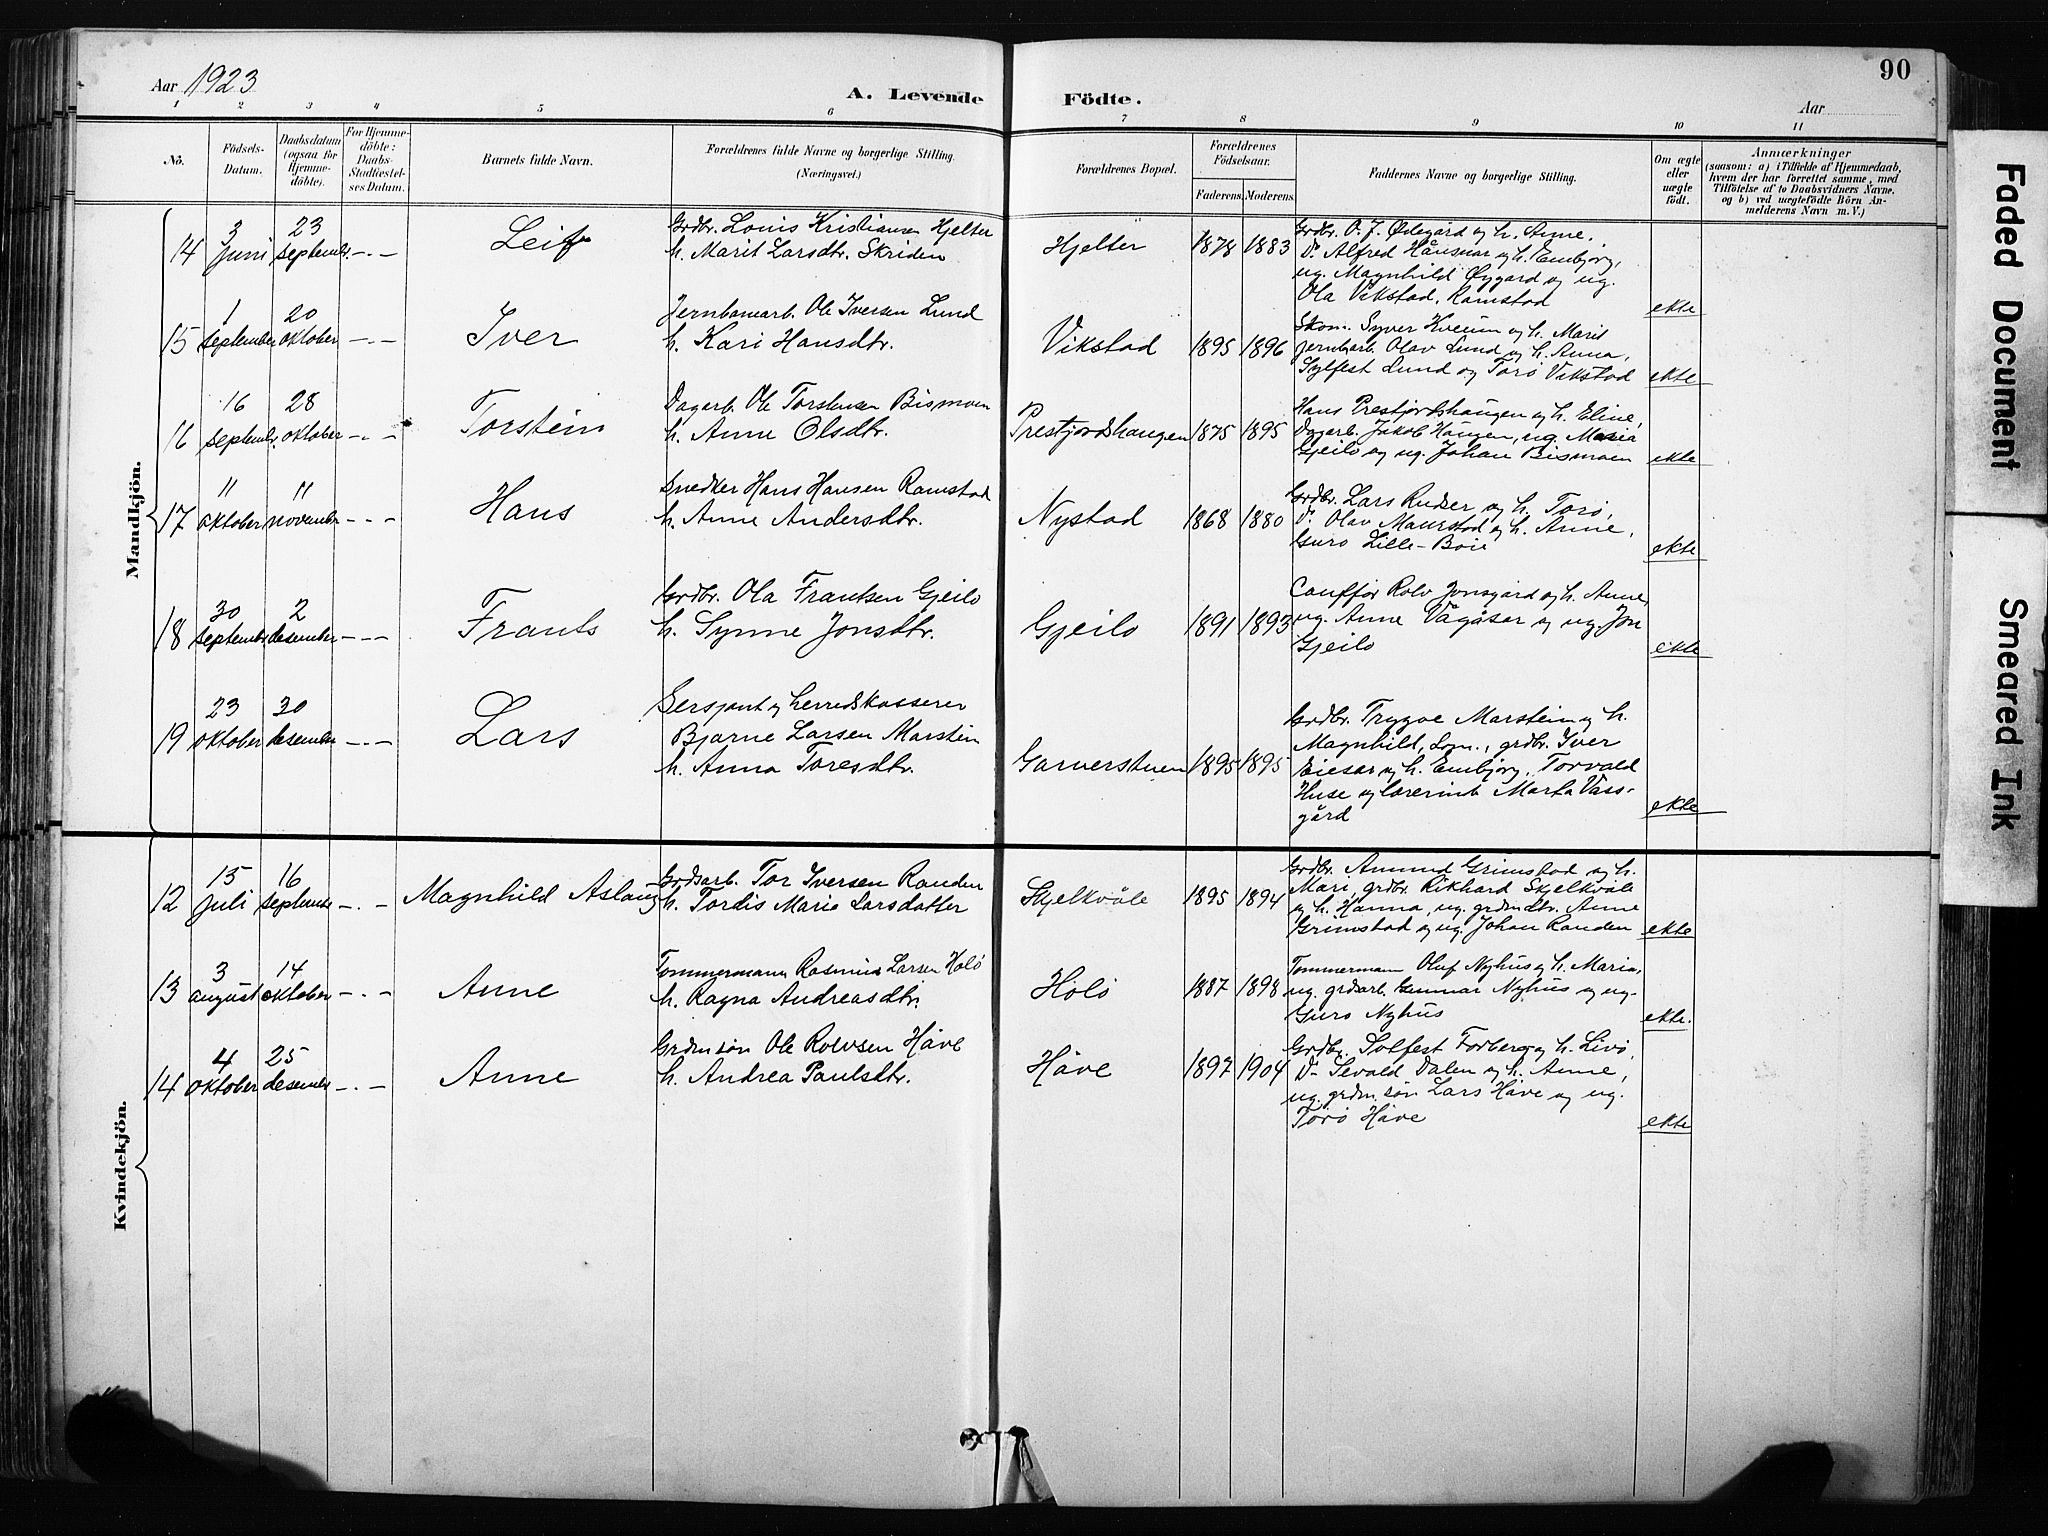 Aar 1923
A. Levende Födte.
Aar
90
1 2 3 4 5 6 7 8 9 10 11
No.
Födsels-
Datum.
Daabsdatum
(ogsaa for
Hjemme-
döbte).
For Hjemme-
döbte:
Daabs-
Stadfæstel-
ses Datum.
Barnets fulde Navn.
Forældrenes fulde Navne og borgerlige Stilling.
(Næringsvei.)
Forældrenes Bopæl.
Forældrenes
Födselsaar.
Faderens. Moderens.
Faddernes Navne og borgerlige Stilling.
Om ægte
eller
uægte
födt.
Anmærkninger
(saasom: a) i Tilfælde af Hjemmedaab,
hvem der har forrettet samme, med
Tilföielse af to Daabsvidners Navne.
og b) ved uægtefödte Börn An-
melderens Navn m. V.)
Mandkjön.
14
3
juni
23
septembr.
-.-
Leif
Grdbr. Louis Kristiansen Hjelter
h. Marit Larsdtr. Skriden
Hjelter
1878 1883
Grdbr. O. J. Ødegård og h. Anne,
Do Alfred Hånsnar og h. Embjørg,
ug. Magnhild Øygard og ug.
Ola Vikstad, Ramstad
ekte
15
1
september
20
oktober
-.-
Iver
Jernbanearb. Ole Iversen Lund
h. Kari Hansdtr.
Vikstad
1895 1896
Skom. Syver Kveum og h. Marit
jernbarb. Olav Lund og h. Anna,
Sylfest Lund og Torø Vikstad
ekte
16
16
septembr.
28
oktober
-.-
Torstein
Dagarb. Ole Torstensen Bismoen
h. Anne Olsdtr.
Prestjordshaugen
1875 1895
Hans Prestjordshaugen og h. Eline,
Dagarb. Jakob Haugen, ug. Maria
Gjeilo og ug. Johan Bismoen
ekte
17
11
oktober
11
novembr
-.-
Hans
Snedker Hans Hansen Ramstad
h. Anne Andersdtr.
Nystad
1868 1880
Grdbr. Lars Rudser og h. Torø,
Do Olav Maurstad og h. Anne,
Guro Lille-Bøie
ekte
18
30
septembr
2
desember
-.-
Frants
Grdbr. Ola Frantsen Gjeilo
h. Synne Jonsdtr.
Gjeilo
1891 1893
Cauffør Rolv Jonsgård og h. Anne,
ug. Anne Vågåsar og ug. Jon
Gjeilo
ekte
19
23
oktober
30
desember
-.-
Lars
Sersjant og herredskasserer
Bjarne Larsen Marstein
h. Anna Toresdtr.
Garverstuen
1895 1895
Grdbr. Trygve Marstein og h.
Magnhild, Lom., grdbr. Iver
Eiesar og h. Embjørg, Torvald
Huse og lærerinde Marta Vass-
gård
ekte
Kvindekjön.
12
15
juli
16
septembr
-.-
Magnhild Aslaug
Grdsarb. Tor Iversen Randen
h. Tordis Marie Larsdatter
Skjelkvåle
1895 1894
Grdbr. Amund Grimstad og h.
Mari, grdbr. Rikhard Skjelkvåle
og h. Hanna, ug. grdmdtr. Anne
Grimstad og ug. Johan Randen
ekte
13
3
august
14
oktober
-.-
Anne
Tommermann Rasmus Larsen Holø
h. Ragna Andreasdtr.
Holø
1887 1898
Tommermann Oluf Nyhus og h. Maria,
ug. grdsarb. Gunnar Nyhus og ug.
Guro Nyhus
ekte.
14
4
oktober
25
desembr
-.-
Anne
Grdm.søn Ole Rolvsen Håve
h. Andrea Paulsdtr.
Håve
1897 1904
Grdbr. Sylfest Forberg og h. Livø,
Do Sevald Dalen og h. Anne,
ug. grdm.søn Lars Håve og ug.
Torø Håve
ekte
Faded Document
Smeared Ink